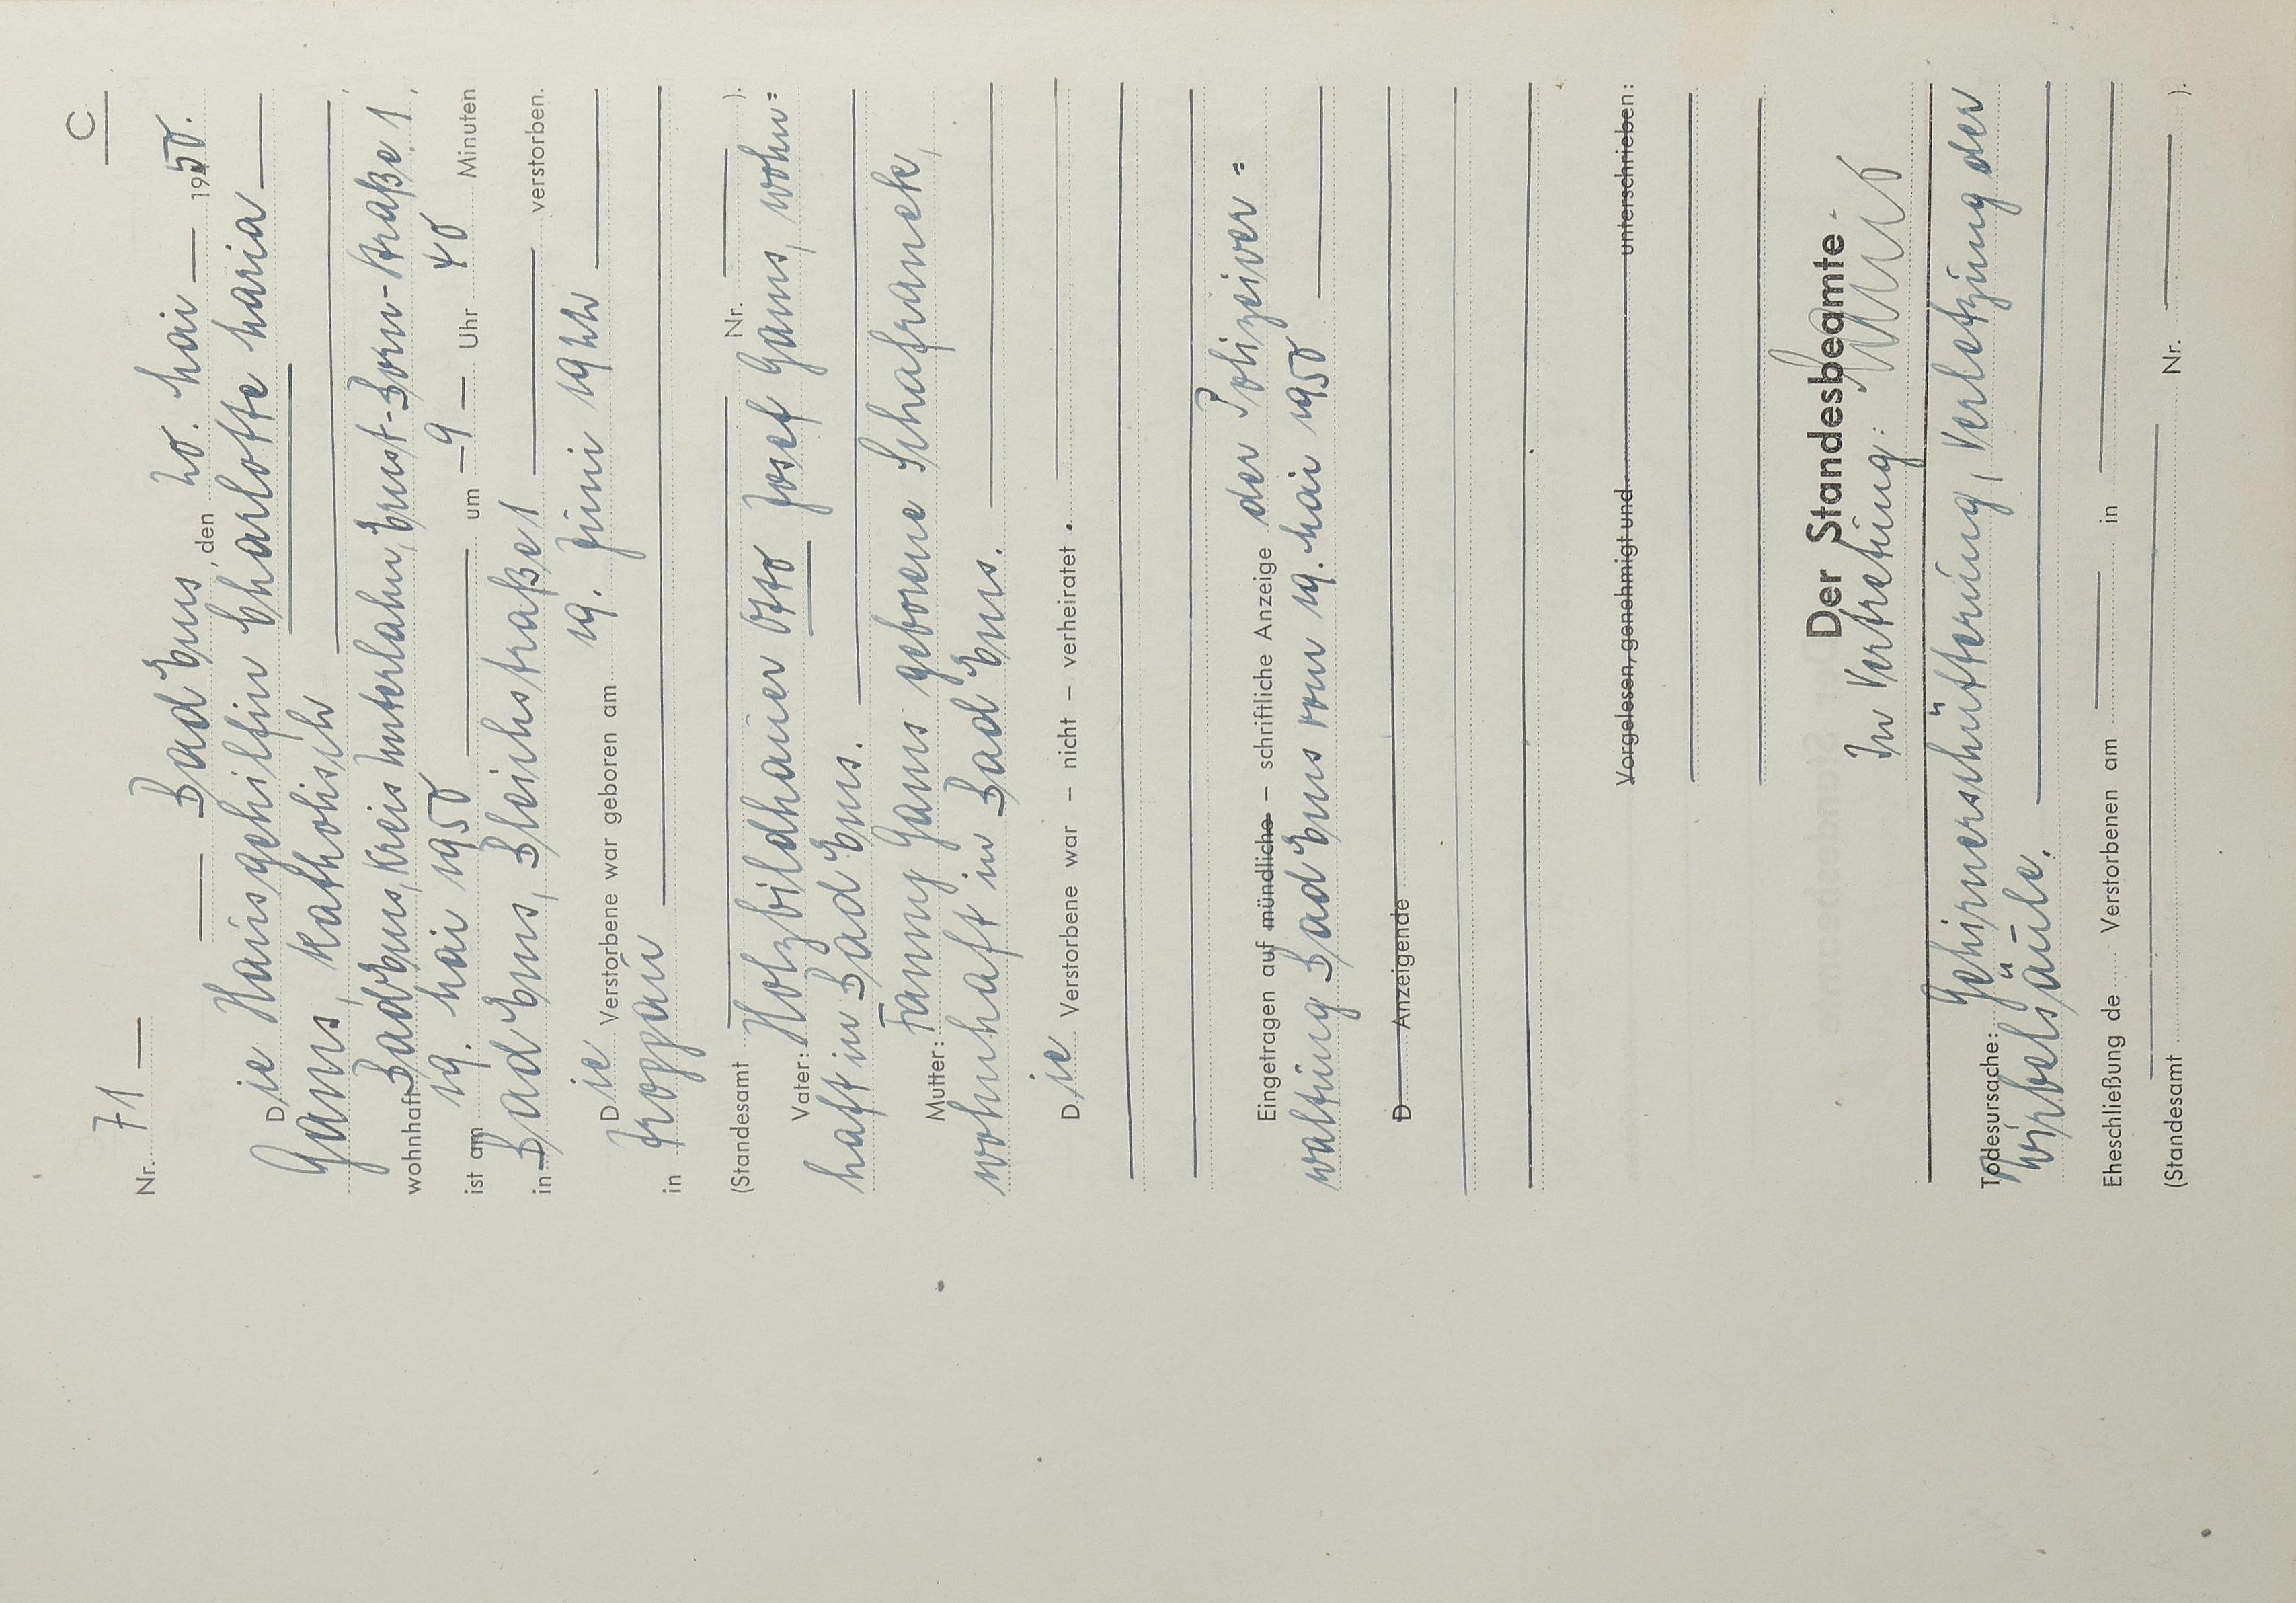 C
Nr. 71 —
— Bad Ems, den 20. Mai — 1950.
Die Hausgehilfin Charlotte Maria —
Gans, katholisch —,
wohnhaft Bad Ems, Kreis Unterlahn, Ernst-Born-Straße 1,
ist am 19. Mai 1950 — um — 9 — Uhr 40 Minuten
in Bad Ems, Bleichstraße 1 — verstorben.
Die Verstorbene war geboren am 19. Juni 1922 —
in Troppau —
(Standesamt — Nr. — ).
Vater: Holzbildhauer Otto Josef Gans, wohn=
haft in Bad Ems. —
Mutter: Fanny Gans geborene Schafranek,
wohnhaft in Bad Ems. —
Die Verstorbene war – nicht – verheiratet. —
Eingetragen auf mündliche – schriftliche Anzeige der Polizeiver=
waltung Bad Ems vom 19. Mai 1950 —
D Anzeigende
Vorgelesen, genehmigt und unterschrieben:
Der Standesbeamte
In Vertretung:
Todesursache: Gehirnerschütterung, Verletzung der
Wirbelsäule. —
Eheschließung de Verstorbenen am — in —
(Standesamt — Nr. — ).